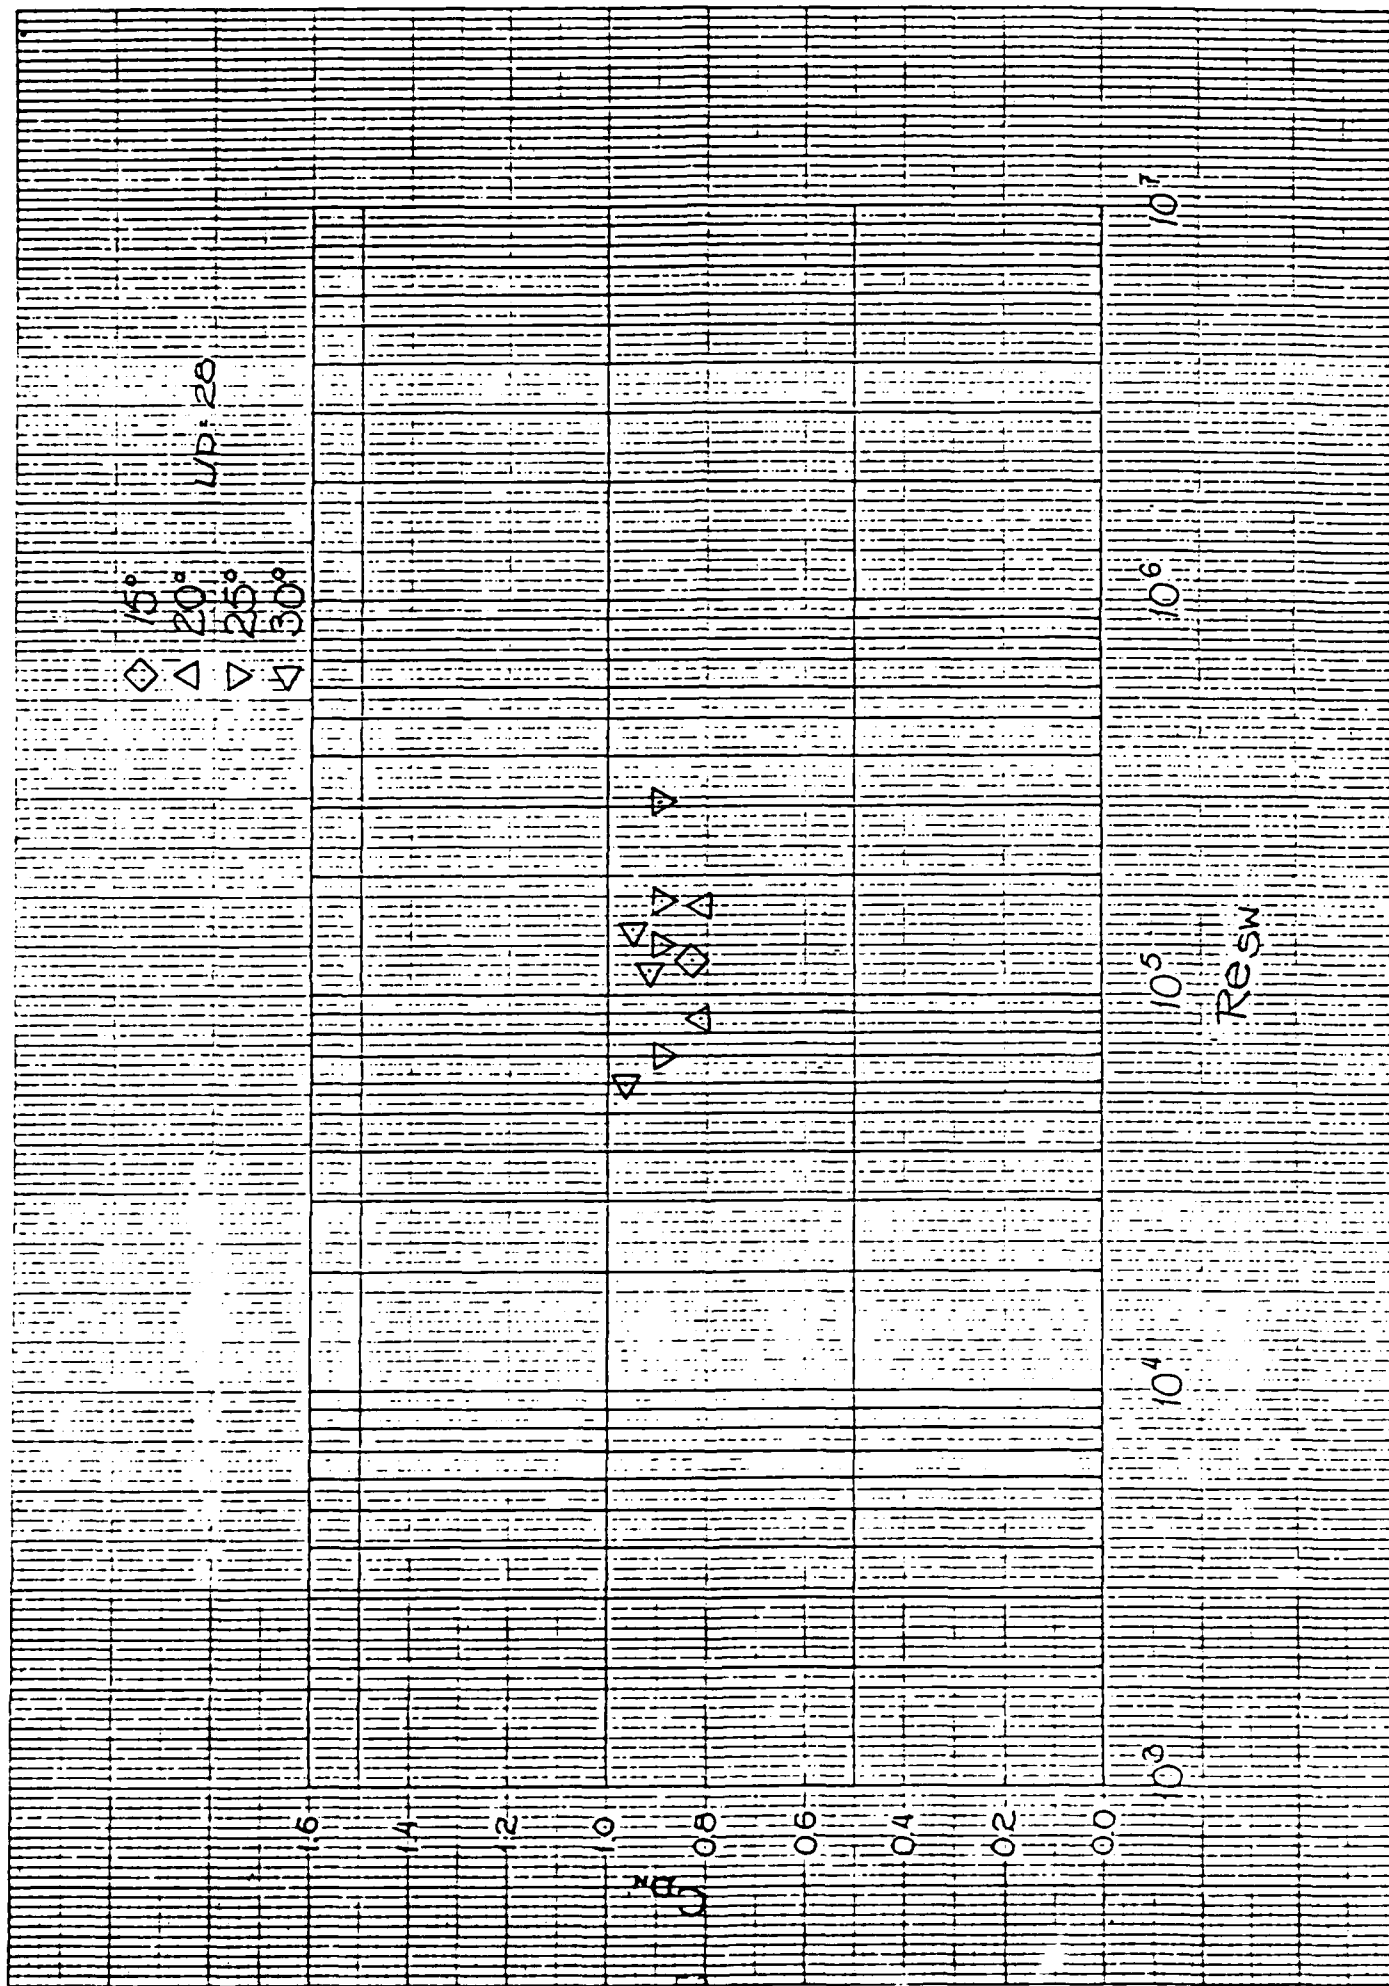 ◇ 15°
△ 20°
▽ 25°
◁ 30°
L/D=28
1.6
1.4
1.2
1.0
0.8
0.6
0.4
0.2
0.0
10³
10⁴
10⁵
10⁶
10⁷
Re SW